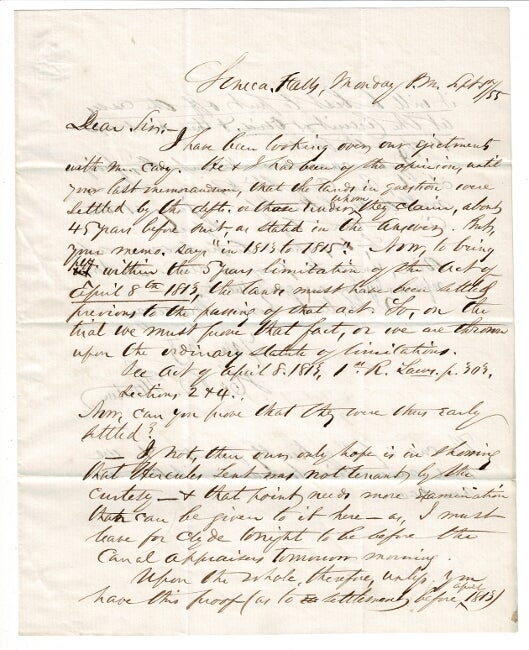 Seneca Falls, Monday P.M. Sept 8th /55
Dear Sir:-
I have been looking over our ejectments
with Mr. Cady. He & I had been of the opinion, until
your last memorandum, that the lands in question were
settled by the defts. or those under whom they claim, about
45 years before suit, as stated in the Answer. But,
your memo. says "in 1813 to 1815". Now, to bring
def within the 5 years limitation of the Act of
April 8th 1813, the lands must have been settled
previous to the passing of that act. So, on the
trial we must prove that fact, or we are thrown
upon the ordinary statute of limitations.
See Act of April 8. 1813, 1st R. Laws. p. 303,
Sections 2 & 4.
Now, can you prove that they were thus early
settled?
— If not, then our only hope is in showing
that Hercules Lent was not tenant by the
curtesy — & that point needs more examination
than can be given to it here — as, I must
leave for Clyde to night to be before the
Canal Appraisers tomorrow morning.
Upon the whole, therefore, unless you
have this proof (as to settlement before April 1813)